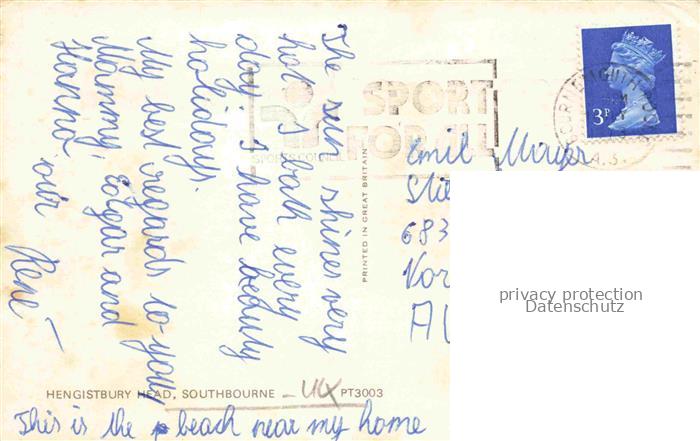 The sun shines very
hot. I bath every
day. I have beduty
holidays.
My best regards to you
Mammy, Edgar and
Hanno.
our René
SPORT
FOR ALL
SPORTS COUNCIL
3P
PRINTED IN GREAT BRITAIN
Emil
683
Vor
privacy protection
Datenschutz
HENGISTBURY HEAD, SOUTHBOURNE - UK PT3003
This is the beach near my home